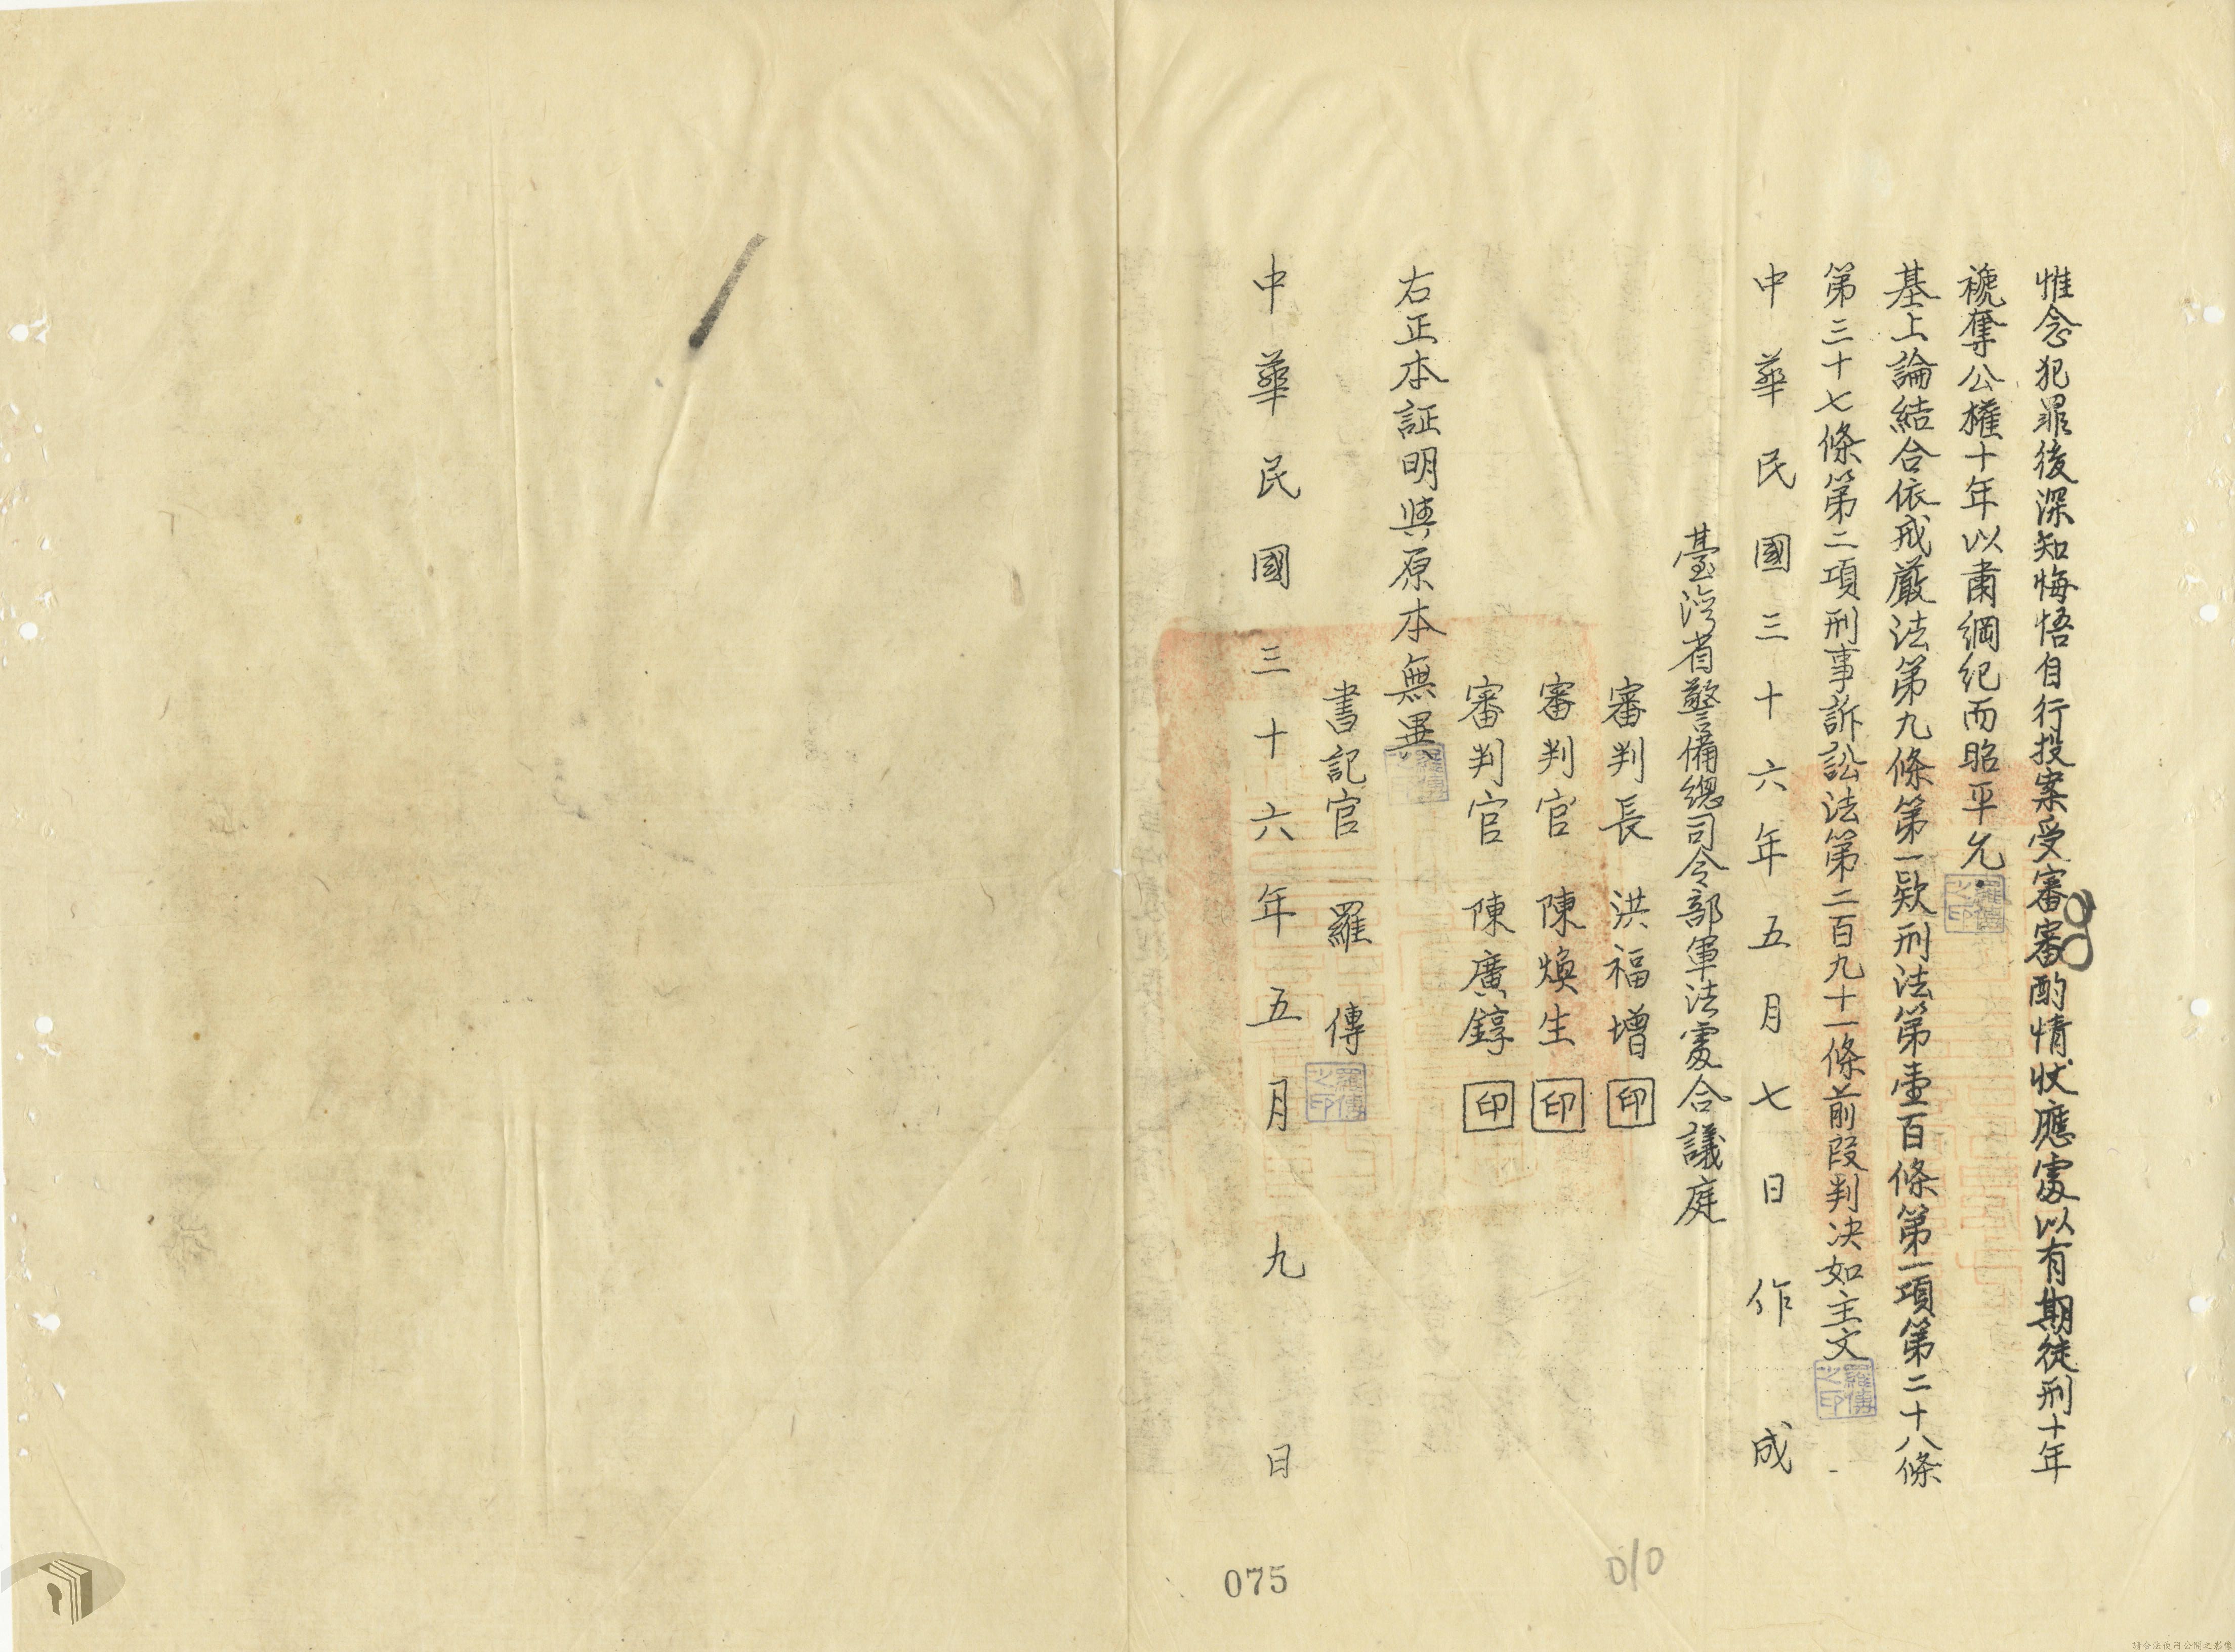 惟念犯罪後深知悔悟自行投案受審審酌情狀應處以有期徒刑十年
褫奪公權十年以肅綱紀而昭平允
基上論結合依戒嚴法第九條第一款刑法第壹百條第一項第二十八條
第三十七條第二項刑事訴訟法第二百九十一條前段判決如主文
中華民國三十六年五月七日作成
臺灣省警備總司令部軍法處合議庭
審判長 洪福增 印
審判官 陳煥生 印
審判官 陳廣錞 印
右正本証明與原本無異
書記官 羅傳
羅傳之印
中華民國三十六年五月九日
075
010
請合法使用公開之影像